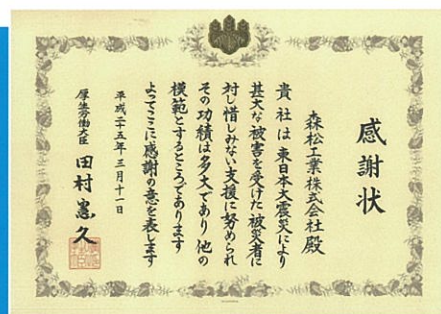 感謝状
森松工業株式会社殿
貴社は東日本大震災により
甚大な被害を受けた被災者に
対し惜しみない支援に努められ
その功績は多大であり他の
模範とするところであります
よってここに感謝の意を表します
平成二十五年三月十一日
厚生労働大臣 田村憲久